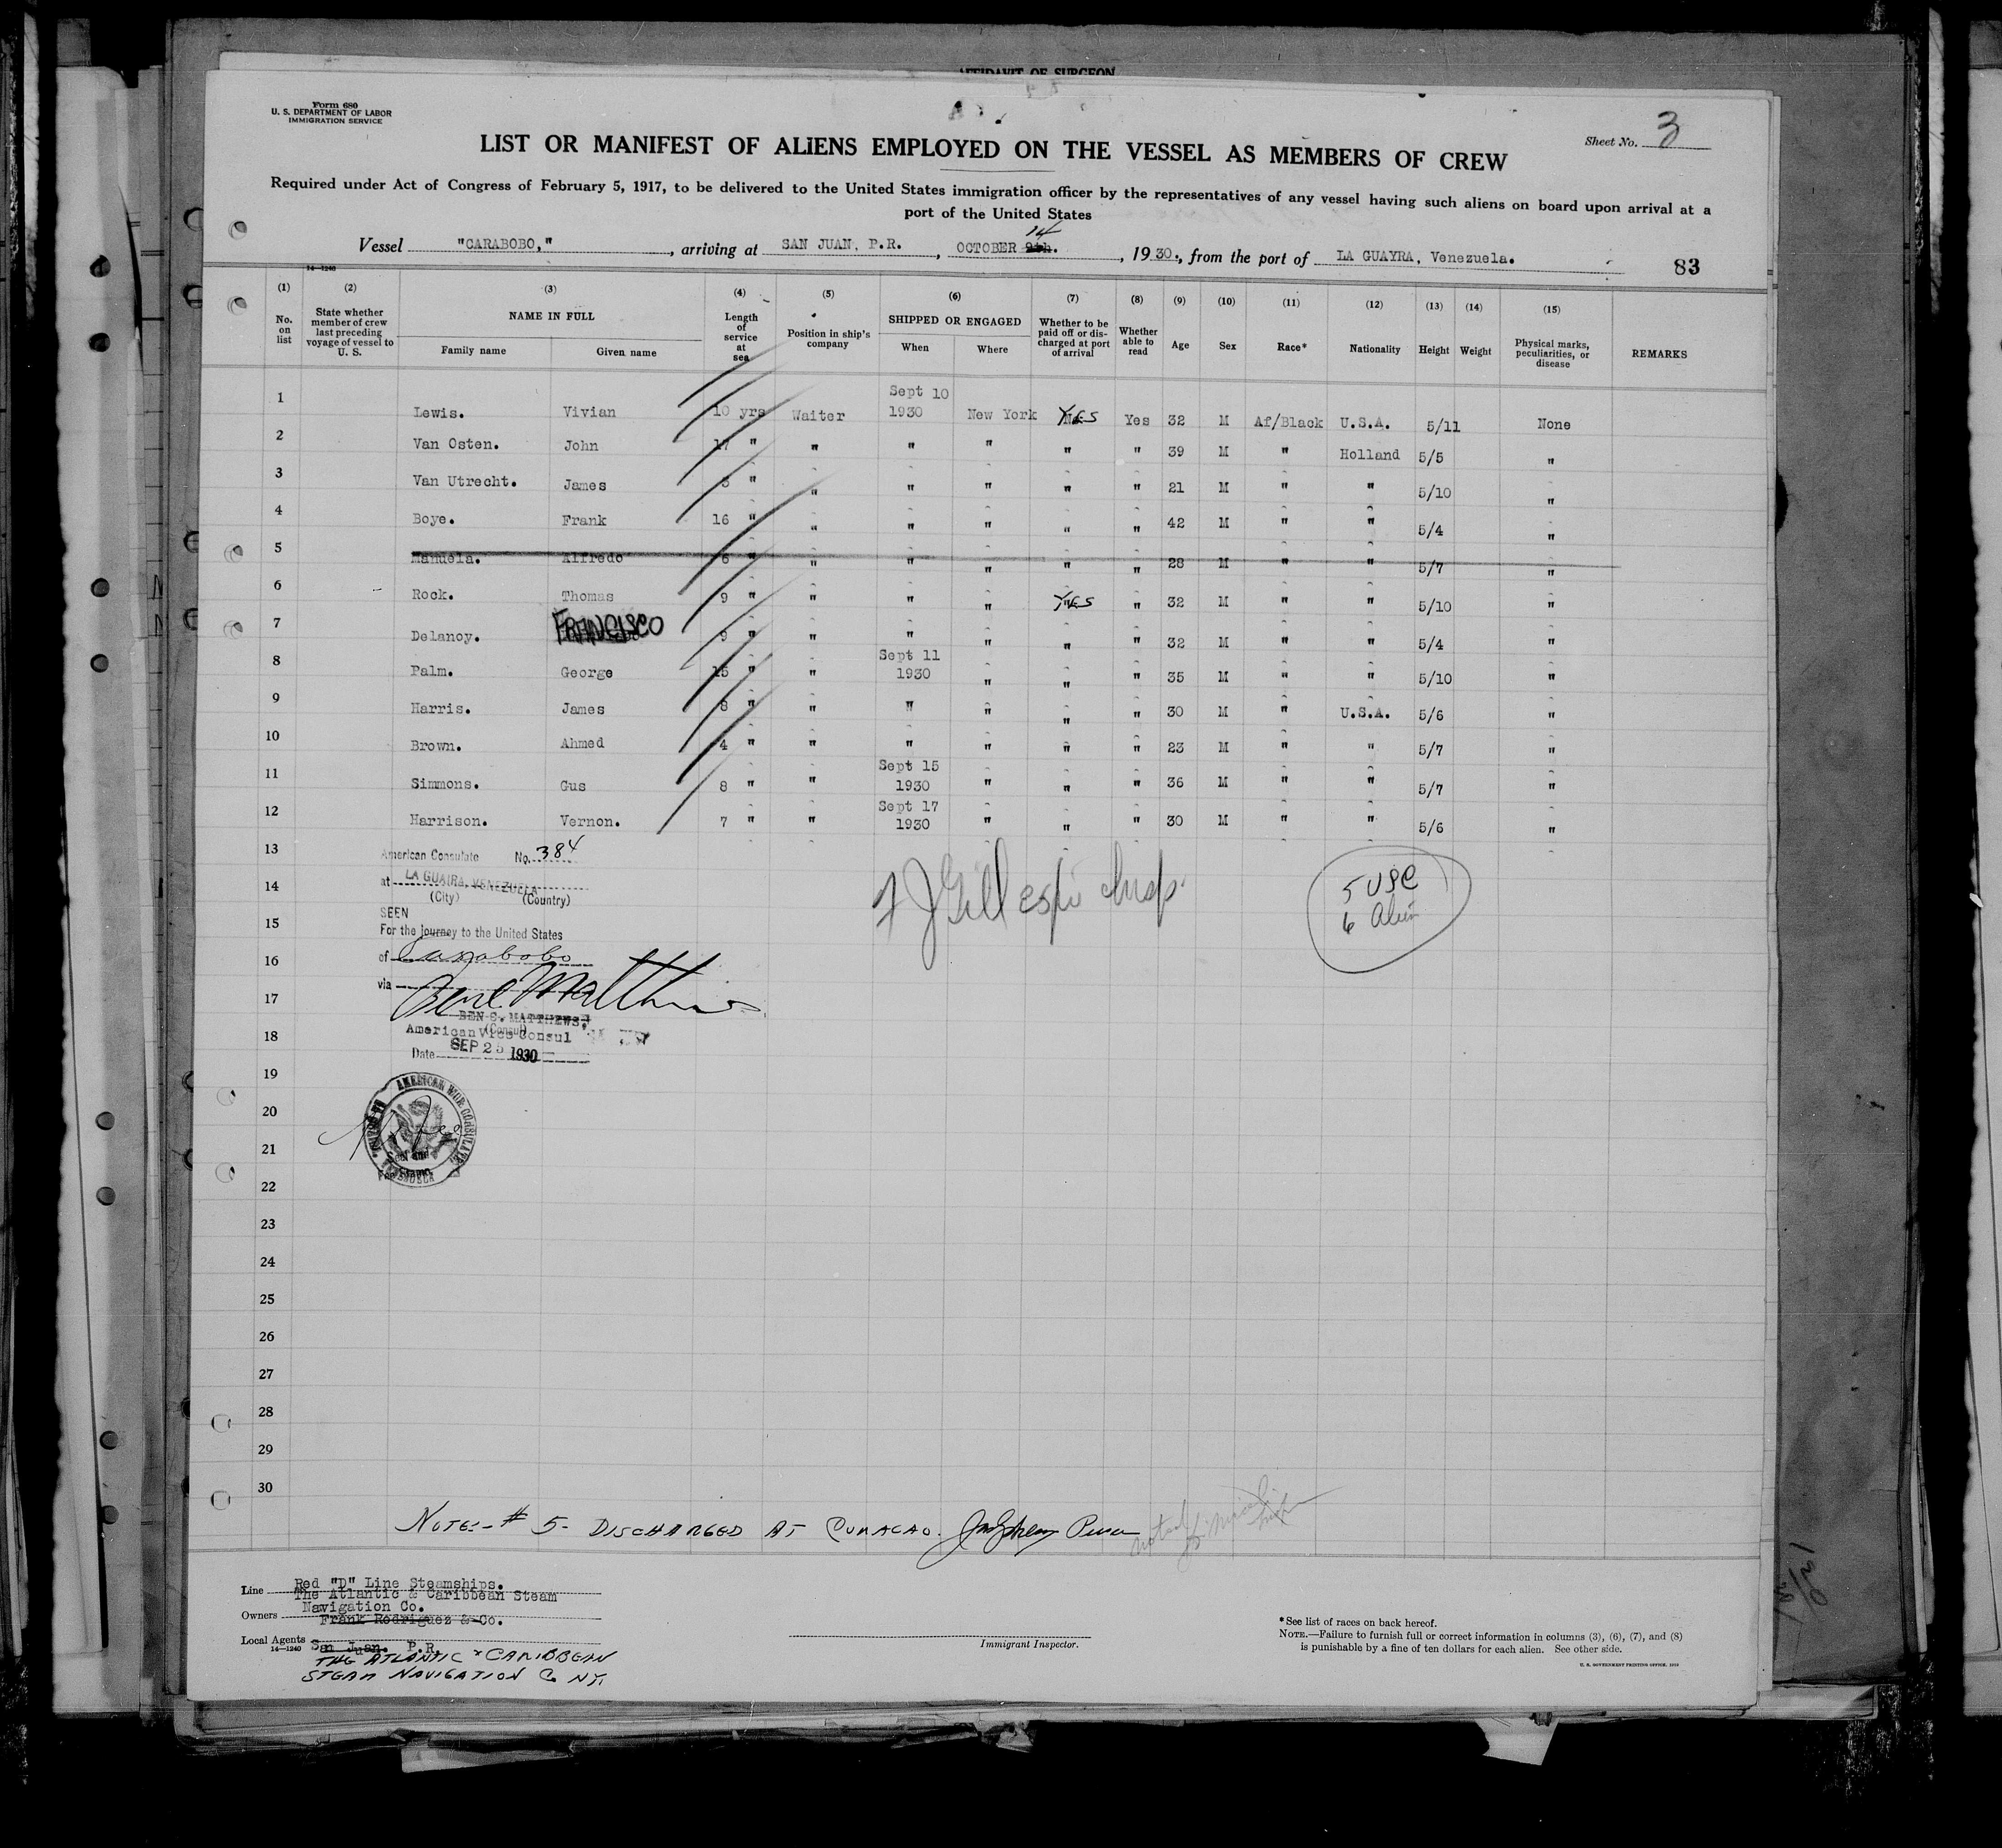 AFFIDAVIT OF SURGEON
Form 680
U. S. DEPARTMENT OF LABOR
IMMIGRATION SERVICE
Sheet No. 3
LIST OR MANIFEST OF ALIENS EMPLOYED ON THE VESSEL AS MEMBERS OF CREW
Required under Act of Congress of February 5, 1917, to be delivered to the United States immigration officer by the representatives of any vessel having such aliens on board upon arrival at a
port of the United States
Vessel "CARABOBO," , arriving at SAN JUAN, P.R. , OCTOBER 9th. 14 , 1930., from the port of LA GUAYRA, Venezuela.
83
14—1240
(1) (2) (3) (4) (5) (6) (7) (8) (9) (10) (11) (12) (13) (14) (15)
No. on list
State whether member of crew last preceding voyage of vessel to U. S.
NAME IN FULL
Family name Given name
Length of service at sea
Position in ship's company
SHIPPED OR ENGAGED
When Where
Whether to be paid off or discharged at port of arrival
Whether able to read
Age Sex Race* Nationality Height Weight
Physical marks, peculiarities, or disease
REMARKS
1 Lewis. Vivian 10 yrs Waiter Sept 10 1930 New York YES Yes 32 M Af/Black U.S.A. 5/11 None
2 Van Osten. John 17 " " " " " " 39 M " Holland 5/5 "
3 Van Utrecht. James 3 " " " " " " 21 M " " 5/10 "
4 Boye. Frank 16 " " " " " " 42 M " " 5/4 "
5 Manuela. Alfredo 6 " " " " " " 28 M " " 5/7 "
6 Rock. Thomas 9 " " " " YES " 32 M " " 5/10 "
7 Delanoy. FRANCISCO 9 " " " " " " 32 M " " 5/4 "
8 Palm. George 15 " " Sept 11 1930 " " " 35 M " " 5/10 "
9 Harris. James 8 " " " " " " 30 M " U.S.A. 5/6 "
10 Brown. Ahmed 4 " " " " " " 23 M " " 5/7 "
11 Simmons. Gus 8 " " Sept 15 1930 " " " 36 M " " 5/7 "
12 Harrison. Vernon. 7 " " Sept 17 1930 " " " 30 M " " 5/6 "
13
14
15
16
17
18
19
20
21
22
23
24
25
26
27
28
29
30
American Consulate No. 384
at LA GUAIRA, VENEZUELA
(City) (Country)
SEEN
For the journey to the United States
of Carabobo
via
Ben C. Matthews
BEN C. MATTHEWS,
American Vice Consul
(Consul)
Date SEP 25 1930
AMERICAN VICE CONSULATE
Gillespie Insp.
5 USC
6 Alien
NOTE:- # 5- DISCHARGED AT CURACAO.
Line Red "D" Line Steamships.
The Atlantic & Caribbean Steam
Owners Navigation Co.
Frank Rodriguez & Co.
Local Agents San Juan. P.R.
14—1240
THE ATLANTIC & CARIBBEAN
STEAM NAVIGATION Co N.Y.
Immigrant Inspector.
*See list of races on back hereof.
NOTE.—Failure to furnish full or correct information in columns (3), (6), (7), and (8)
is punishable by a fine of ten dollars for each alien. See other side.
U. S. GOVERNMENT PRINTING OFFICE